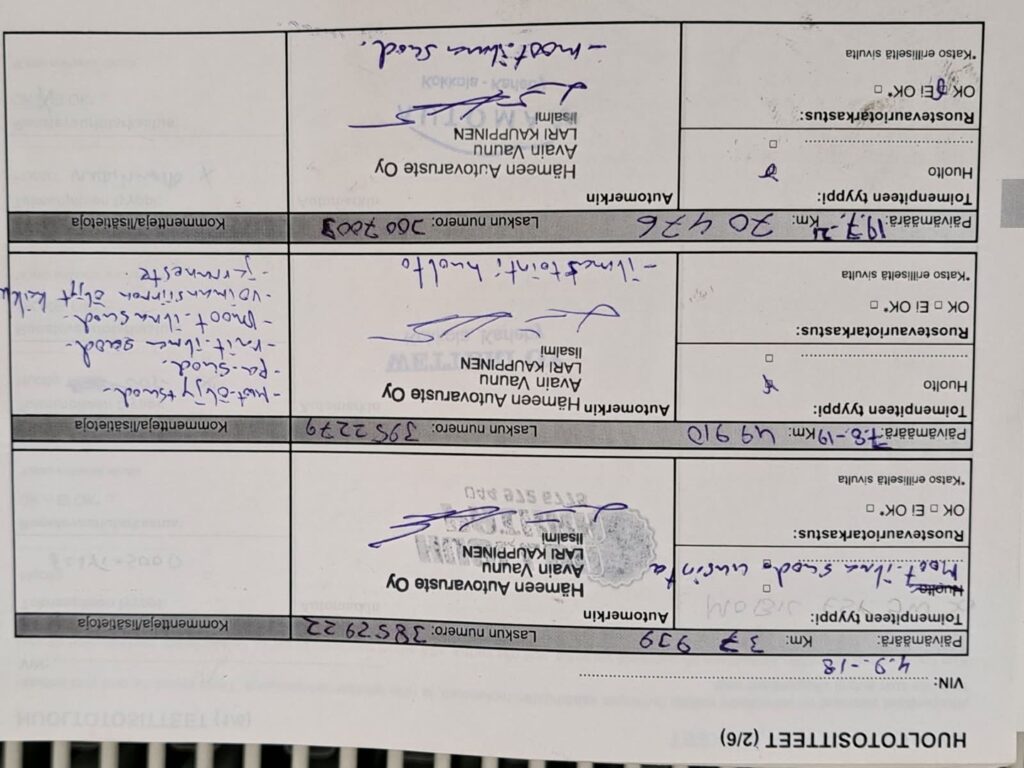 HUOLTOTOSITTEET (2/6)
VIN:
4.9.-18
Päivämäärä: Km: 37 939 Laskun numero: 3852922 Kommentteja/lisätietoja
Toimenpiteen tyyppi: Automerkin
Huolto
Moot.ilma suod. uusinta
Hämeen Autovaruste Oy
Avain Vaunu
LARI KAUPPINEN
Iisalmi
Ruostevauriotarkastus:
OK □ Ei OK* □
*Katso erilliseltä sivulta
044 972 6778
Päivämäärä: 7.8.-19 Km: 49 910 Laskun numero: 3952279 Kommentteja/lisätietoja
Toimenpiteen tyyppi: Automerkin
Huolto
Hämeen Autovaruste Oy
Avain Vaunu
LARI KAUPPINEN
Iisalmi
Ruostevauriotarkastus:
OK □ Ei OK* □
*Katso erilliseltä sivulta
- ilmastointi huolto
- Mot.öljy+suod.
- Ra-suod.
- rait.ilma suod.
- Moot.ilmasuod.
- voimansiirron öljyt
- jarruneste
Päivämäärä: 19.7.-21 Km: 70 476 Laskun numero: Kommentteja/lisätietoja
Toimenpiteen tyyppi: Automerkin
Huolto
Hämeen Autovaruste Oy
Avain Vaunu
LARI KAUPPINEN
Iisalmi
Ruostevauriotarkastus:
OK Ei OK* □
*Katso erilliseltä sivulta
- moot.ilma suod.